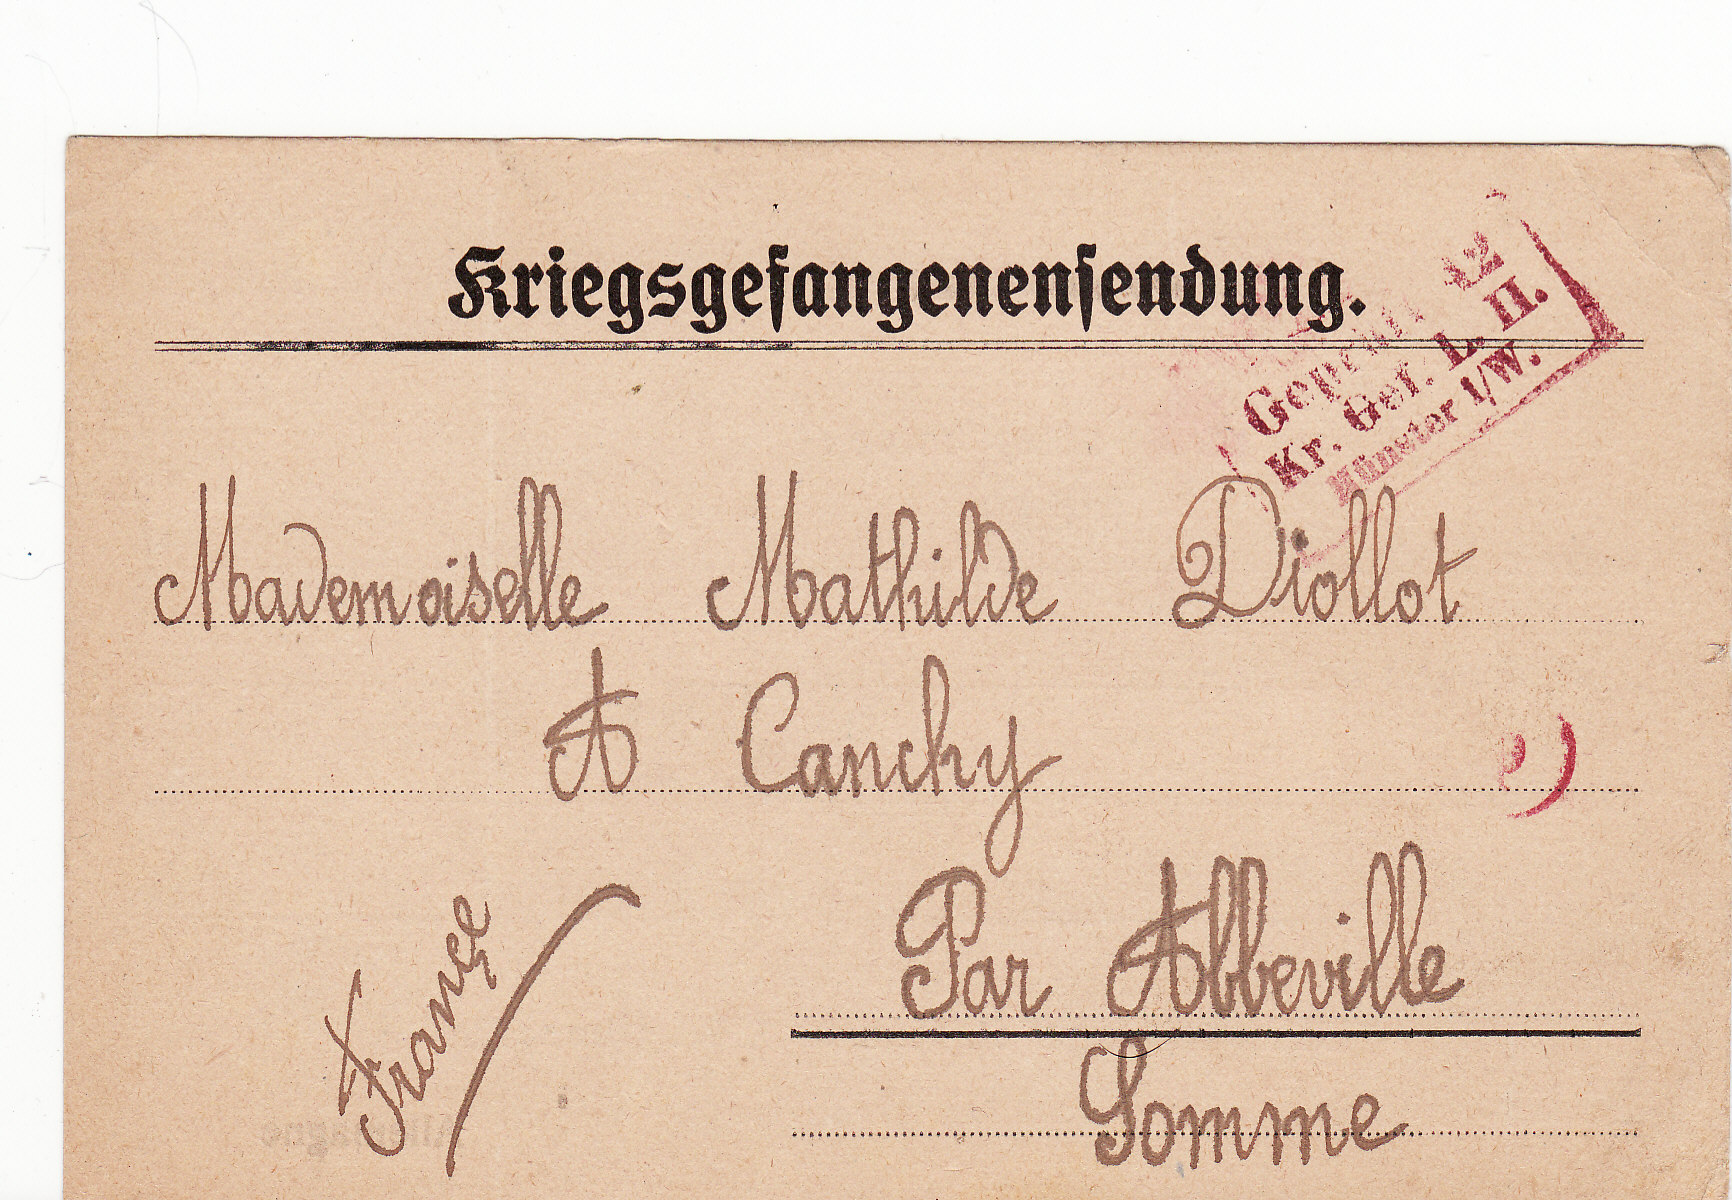 Kriegsgefangenensendung.
Geprüft 12
Kr. Gef. L. II.
Münster i/W.
Mademoiselle Mathilde Diollot
A Canchy
Par Abbeville
Somme
France